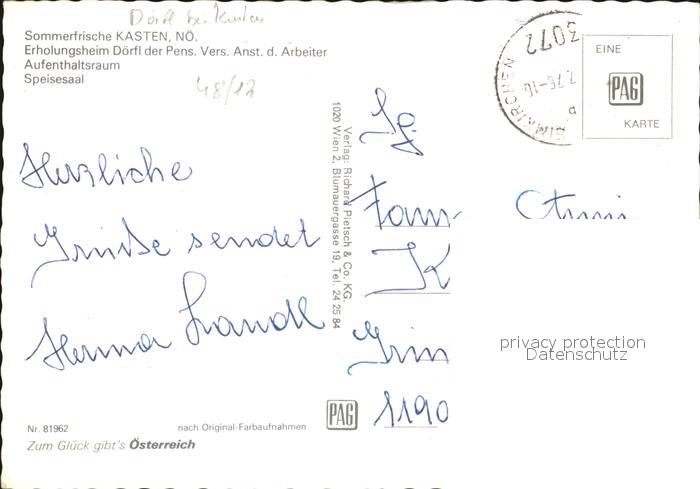 Dörfl bei Kasten
Sommerfrische KASTEN, NÖ.
Erholungsheim Dörfl der Pens. Vers. Anst. d. Arbeiter
Aufenthaltsraum
Speisesaal
48/12
Herzliche
Grüße sendet
Herma Handl
Verlag: Richard Pietsch & Co. KG.
1020 Wien 2, Blumauergasse 19, Tel. 24 25 84
3072
7.76-16
EINE
PAG
KARTE
Fam
K
1190
privacy protection
Datenschutz
PAG
Nr. 81962
nach Original-Farbaufnahmen
Zum Glück gibt's Österreich